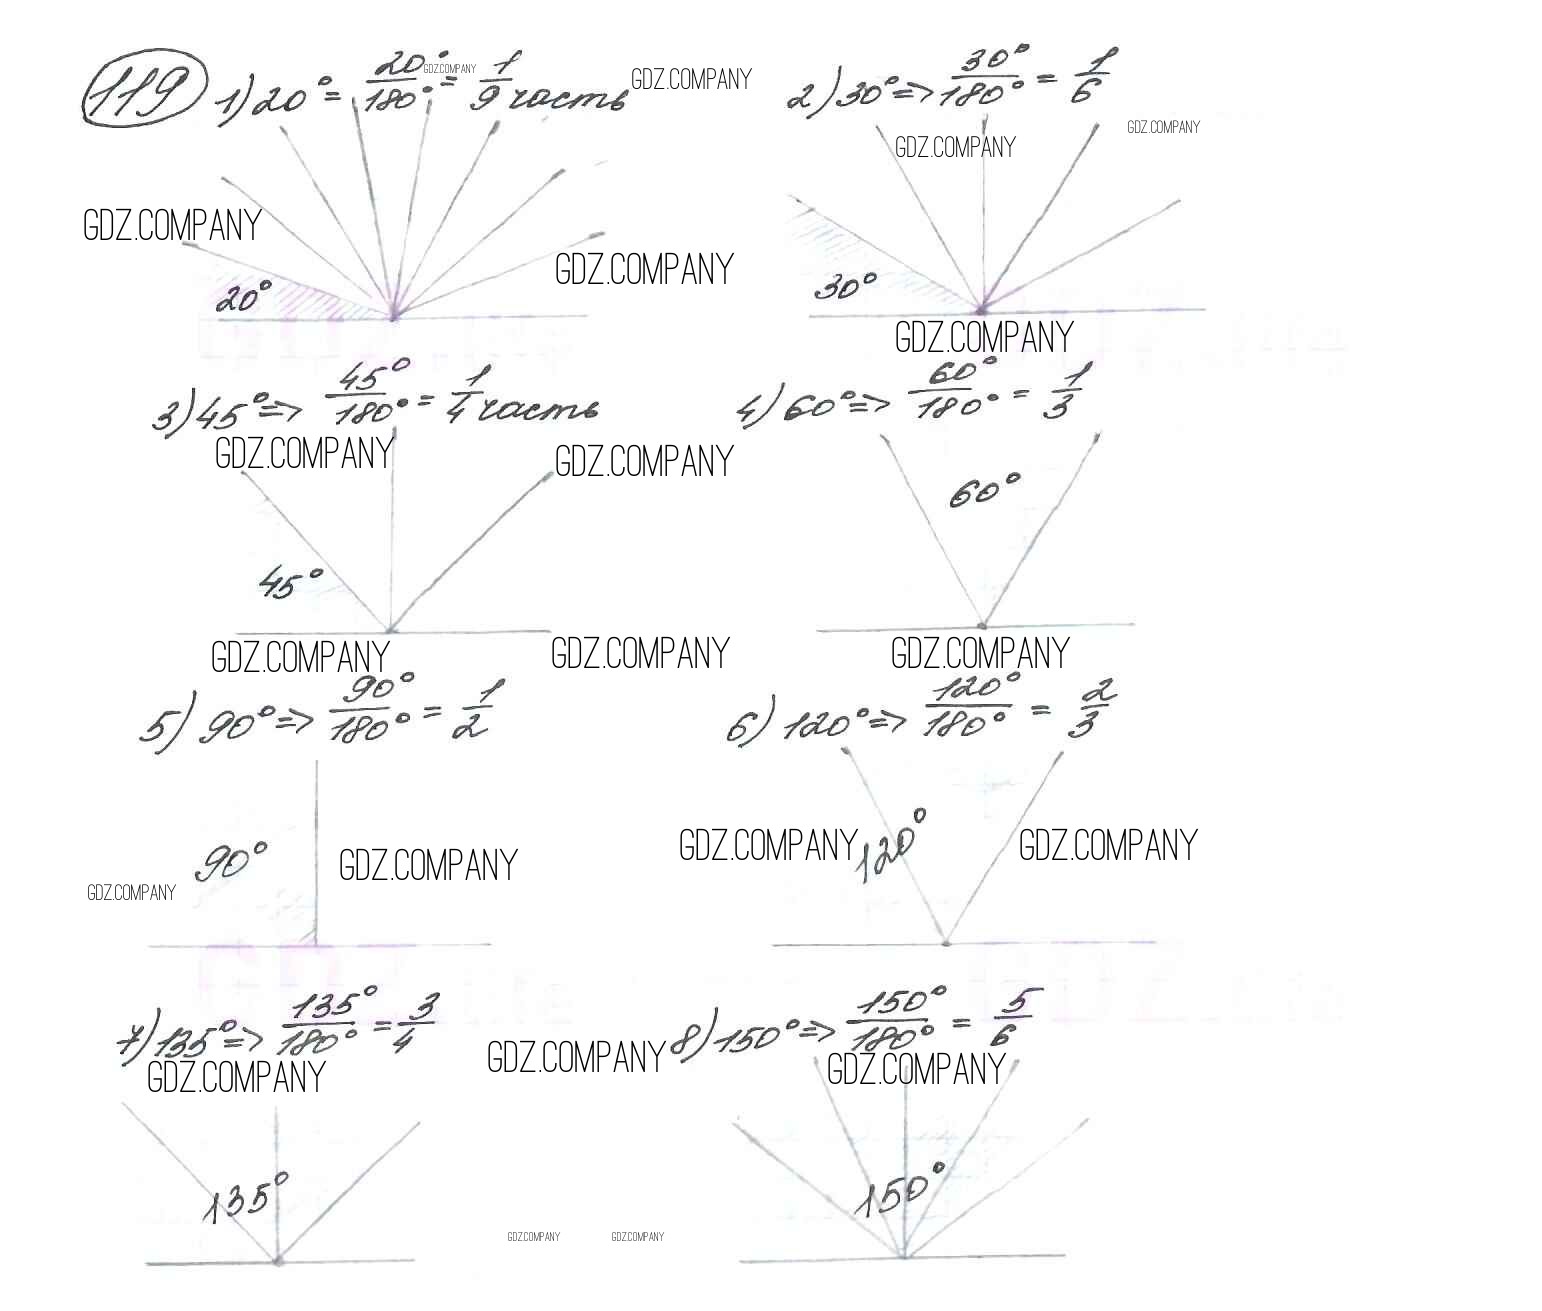 119 1) 20° = 20°/180° = 1/9 часть
GDZ.COMPANY
GDZ.COMPANY
2) 30° => 30°/180° = 1/6
GDZ.COMPANY
GDZ.COMPANY
GDZ.COMPANY
20°
GDZ.COMPANY
30°
GDZ.COMPANY
3) 45° => 45°/180° = 1/4 часть
4) 60° => 60°/180° = 1/3
GDZ.COMPANY
GDZ.COMPANY
45°
60°
GDZ.COMPANY
GDZ.COMPANY
GDZ.COMPANY
5) 90° => 90°/180° = 1/2
6) 120° => 120°/180° = 2/3
90°
GDZ.COMPANY
GDZ.COMPANY
GDZ.COMPANY
120°
GDZ.COMPANY
7) 135° => 135°/180° = 3/4
8) 150° => 150°/180° = 5/6
GDZ.COMPANY
GDZ.COMPANY
GDZ.COMPANY
135°
150°
GDZ.COMPANY
GDZ.COMPANY